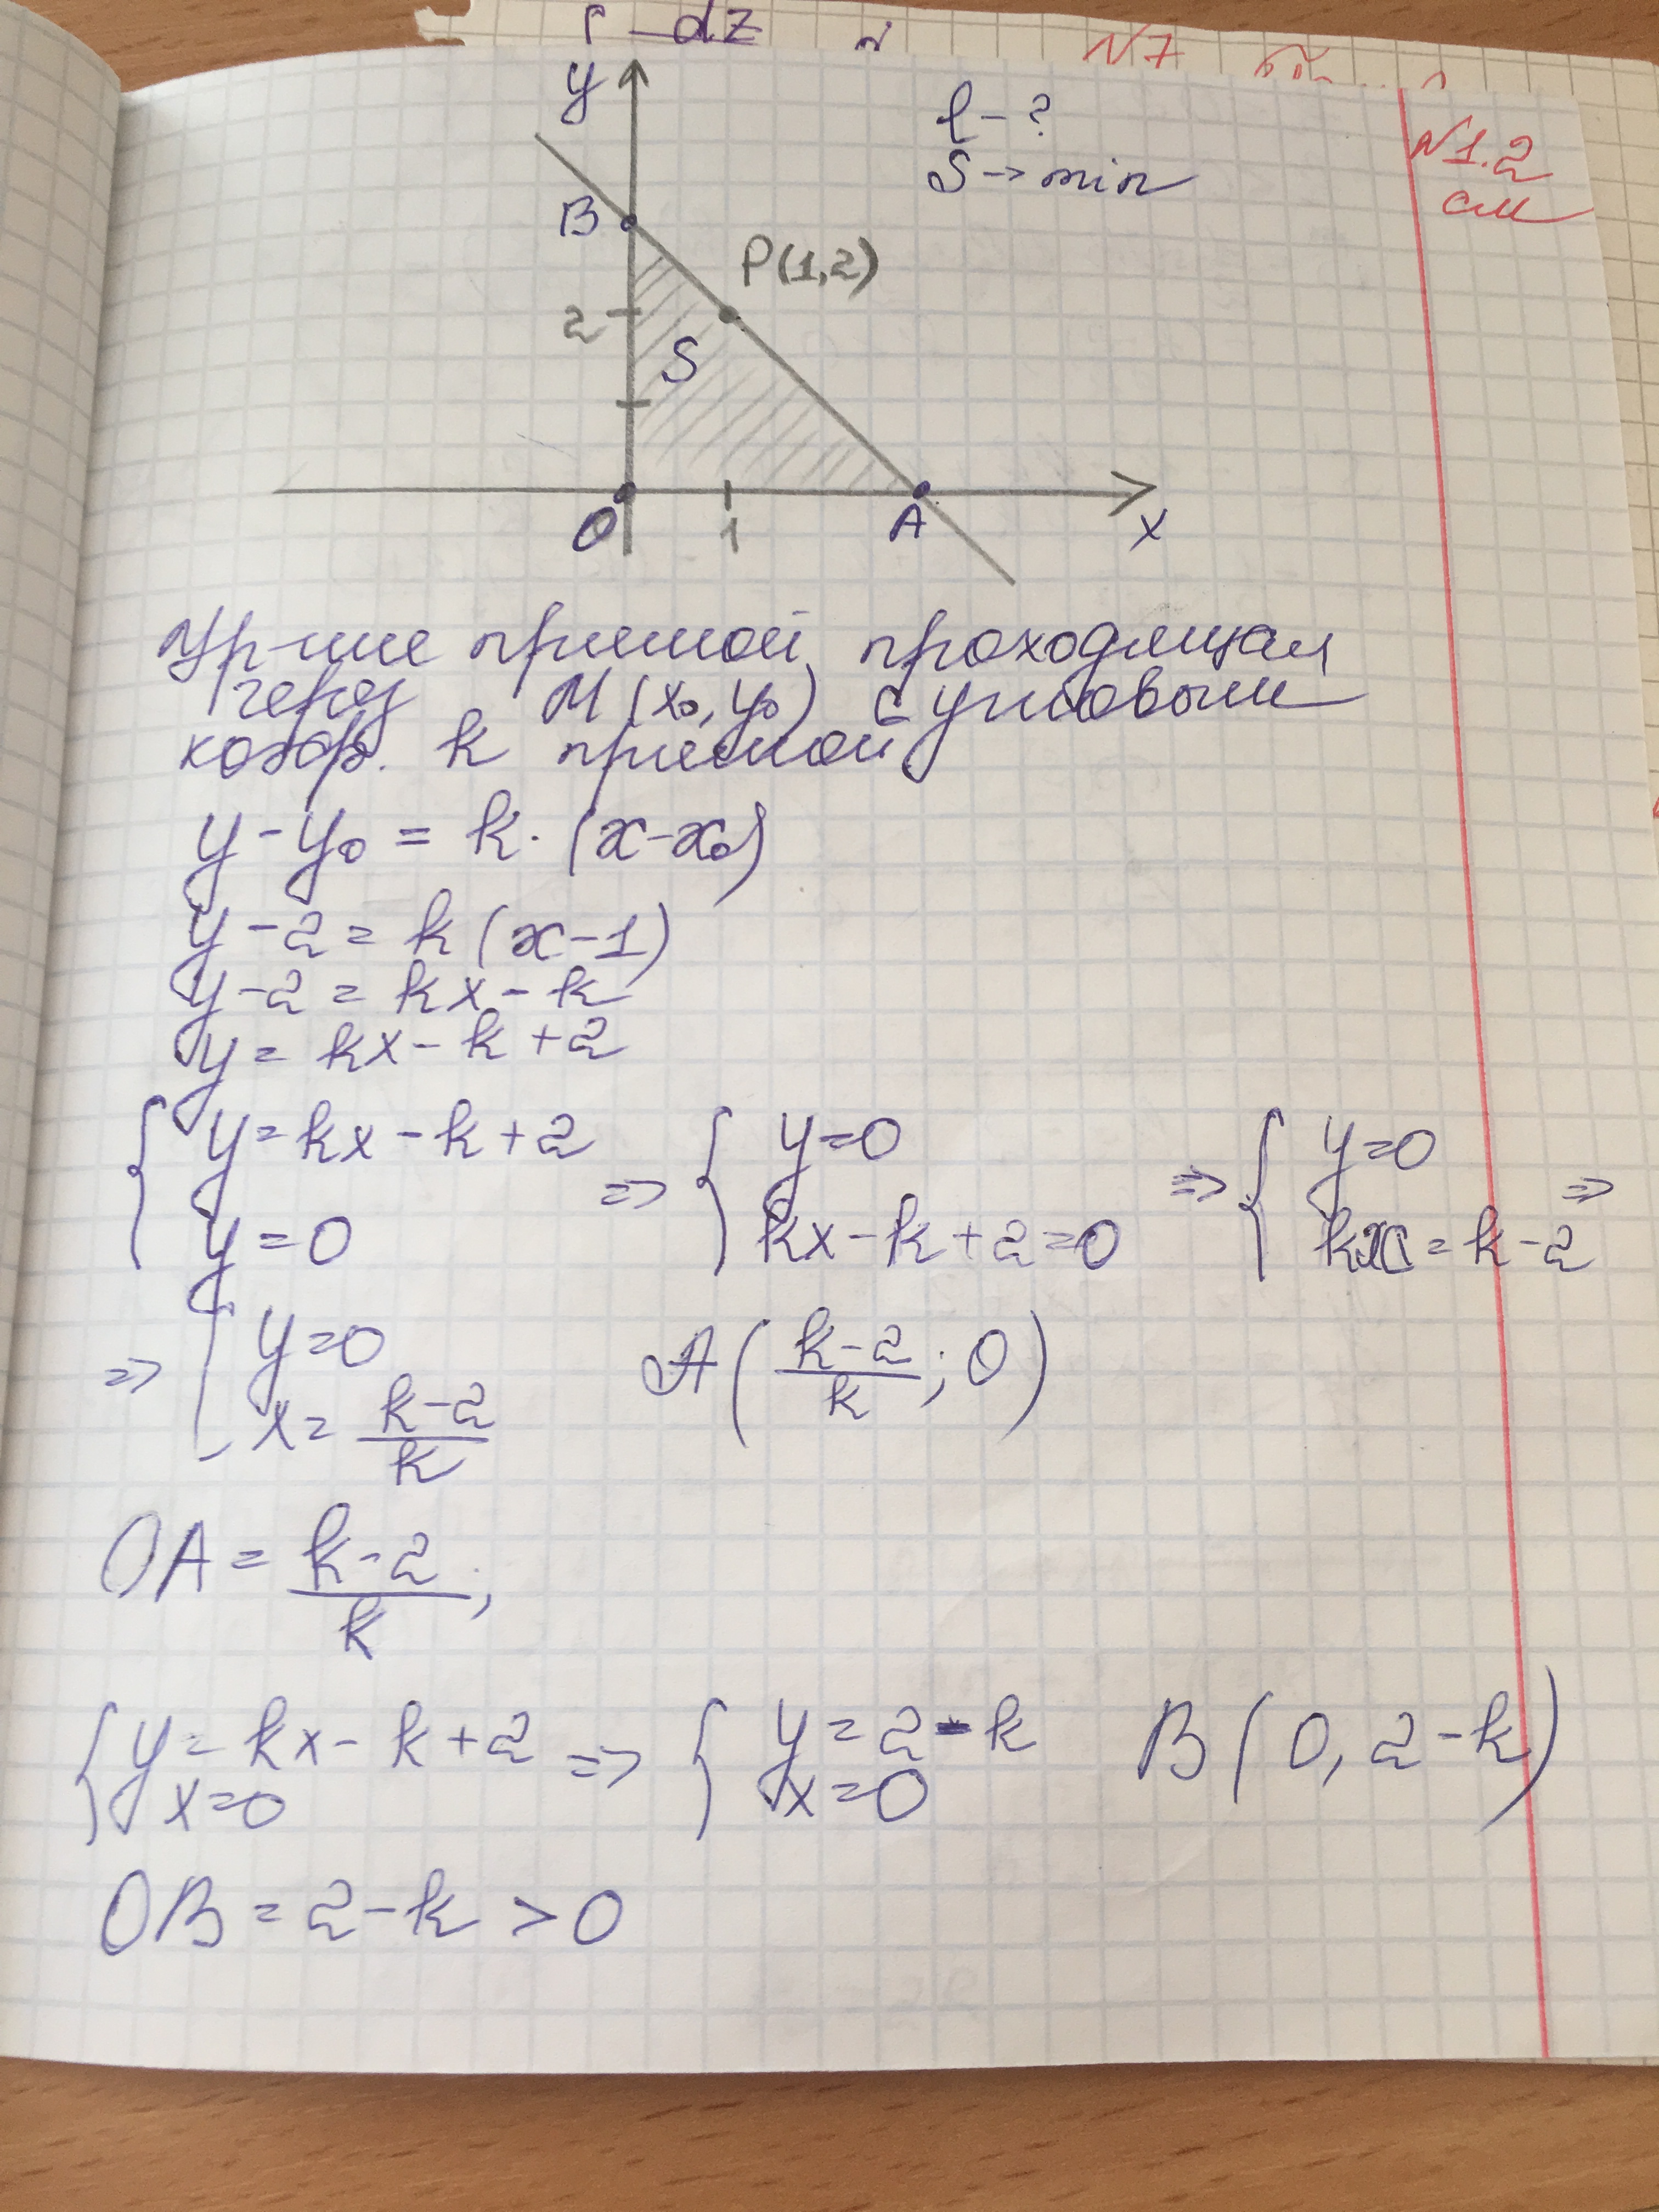 dz
N7
y
l - ?
S → min
N1.2
см
B
P(1,2)
2
S
O
1
A
x
Ур-ние прямой проходящая
через M(x₀, y₀) с угловым
коэф. k прямой
y - y₀ = k · (x - x₀)
y - 2 = k(x - 1)
y - 2 = kx - k
y = kx - k + 2
{ y = kx - k + 2 ; y = 0 => { y = 0 ; kx - k + 2 = 0 => { y = 0 ; kx = k - 2 =>
=> { y = 0 ; x = (k-2)/k A((k-2)/k ; 0)
OA = (k-2)/k ;
{ y = kx - k + 2 ; x = 0 => { y = 2 - k ; x = 0 B(0, 2 - k)
OB = 2 - k > 0